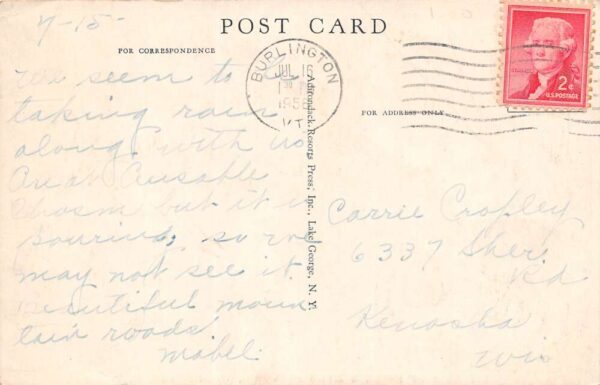 7-15-
POST CARD
FOR CORRESPONDENCE
BURLINGTON
JUL 16
1956
VT.
2¢
U.S. POSTAGE
FOR ADDRESS ONLY
Adirondack Resorts Press, Inc., Lake George, N. Y.
We seem to be
taking rain
along with us
Are at Ausable
Chasm but it is
pouring, so we
may not see it.
Beautiful moun
tain roads.
Mabel
Carrie Cropley
6337 Sher.
Rd
Kenosha
Wis